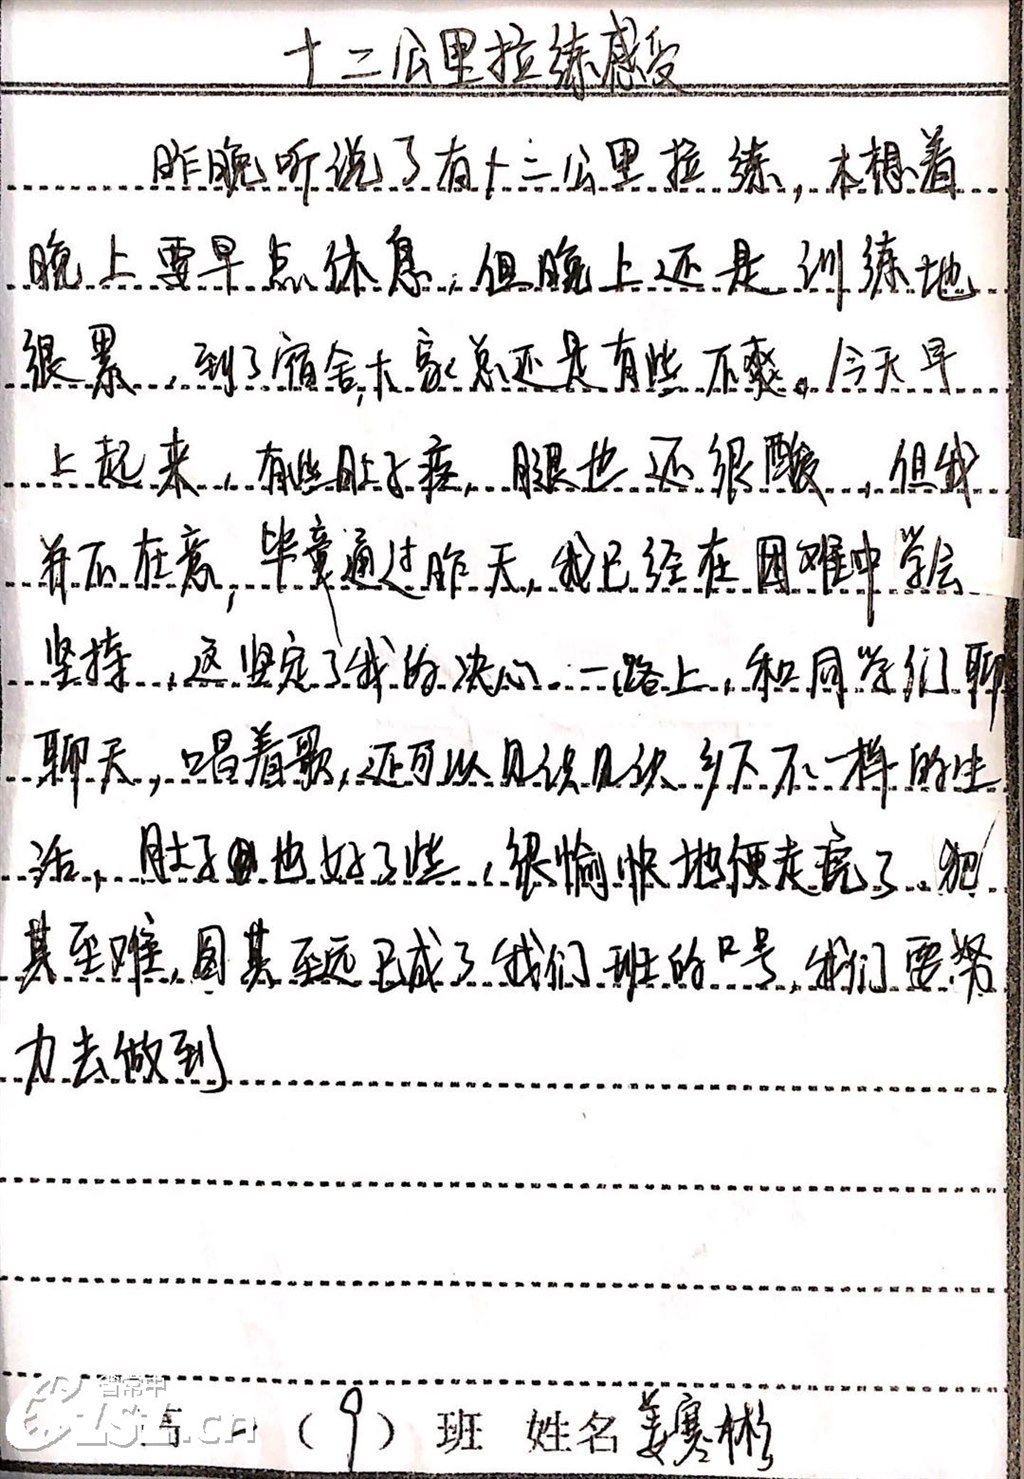 十二公里拉练感受
昨晚听说了有十二公里拉练，本想着
晚上要早点休息，但晚上还是训练地
很累，到了宿舍，大家总还是有些不爽。今天早
上起来，有些肚子疼，腿也还很酸，但我
并不在意，毕竟通过昨天，我已经在困难中学会
坚持，这坚定了我的决心。一路上，和同学们聊
聊天，唱着歌，还可以见识见识乡下不一样的生
活，肚子也好了些，很愉快地便走完了。犯
其至难，图其至远已成了我们班的口号，我们要努
力去做到
高一（9）班 姓名姜寒彬